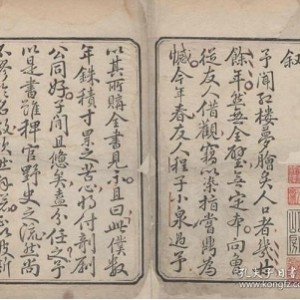 叙
予聞紅樓夢膾炙人口者幾廿
餘年然無全璧無定本向曾
從友人借觀竊以染指嘗鼎為
憾今年春友人程子小泉過予
以其所購全書見示且曰此僕數
年銖積寸累之苦心將付剞劂
公同好子閒且憊矣盍分任之予
以是書雖稗官野史之流然尚
不謬於名教欣然拜諾